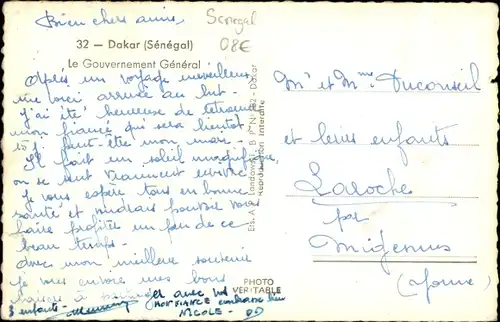 Bien chers amis
Senegal
08€
32 — Dakar (Sénégal)
Le Gouvernement Général
Après un voyage merveilleux
me voici arrivée au but-
j'ai été heureuse de retrouver
mon fiancé qui sera bientôt
peut-être mon mari-
Il fait un soleil magnifique,
on se sent vraiment revivre
Je vous espère tous en bonne
santé et voudrais pouvoir vous
faire profiter un peu de ce
beau temps-
Avec mon meilleur souvenir
je vous envoie mes bons
baisers à et avec vos
3 enfants- MON FIANCE
NICOLE-
PHOTO
VERITABLE
Reproduction Interdite
Mr et Mme Duconseil
et leurs enfants
Laroche
par
Migennes
(Yonne)